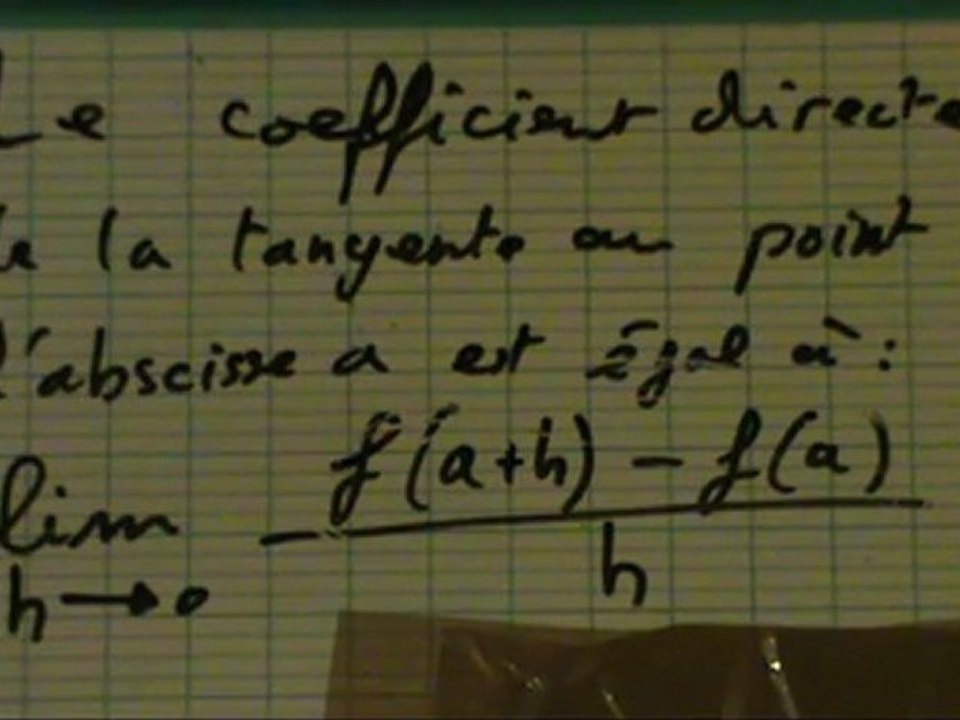 Le coefficient directe
de la tangente au point
d'abscisse a est égal à :
lim f(a+h) - f(a)
h → 0 h